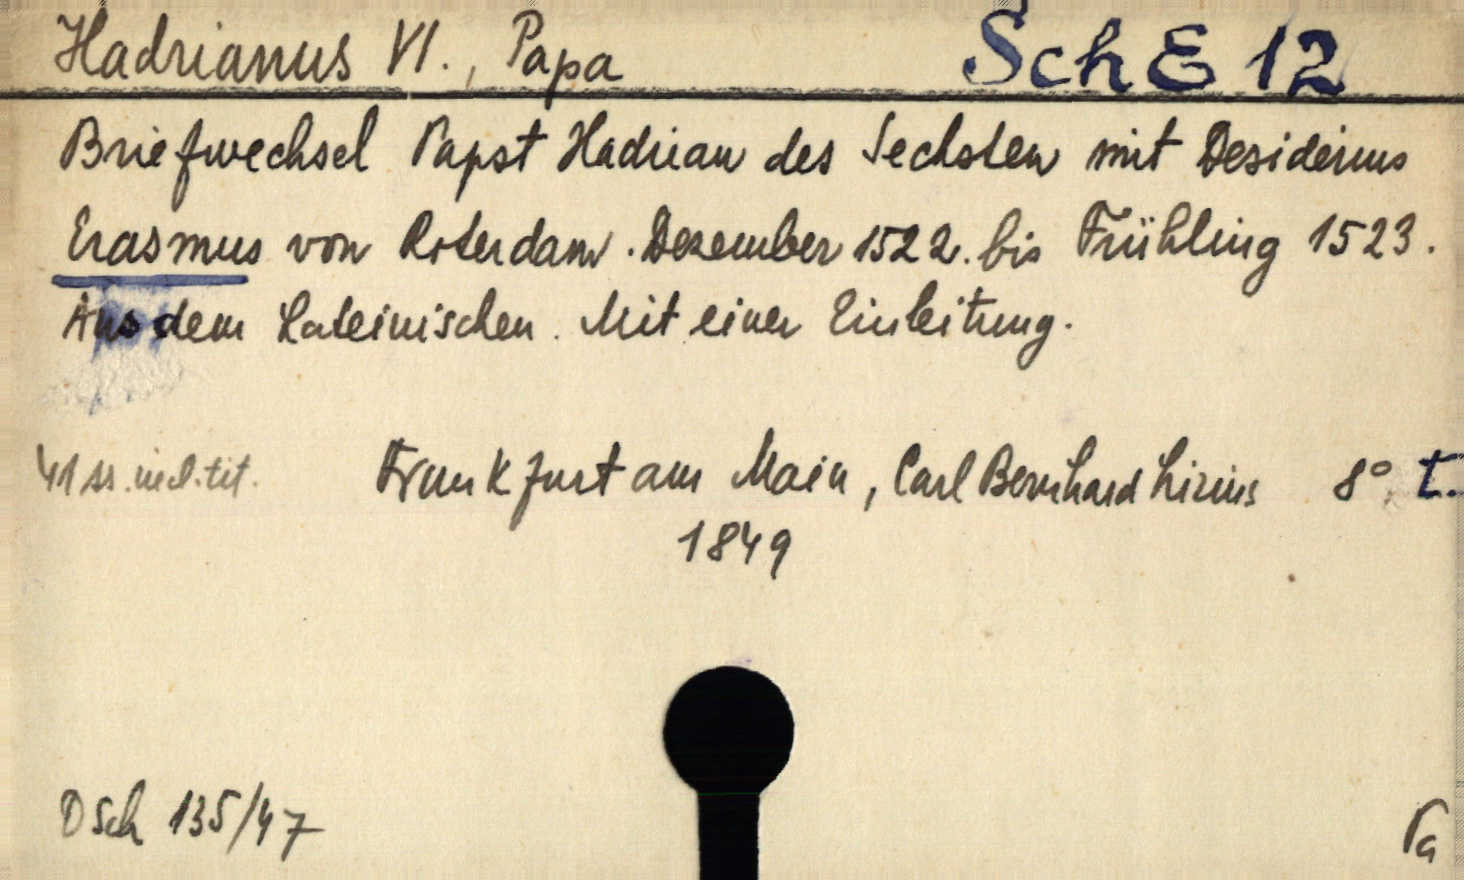 Hadrianus VI., Papa Sch E 12
Briefwechsel Papst Hadrian des Sechsten mit Desiderius
Erasmus von Roterdam. Dezember 1522. bis Frühling 1523.
Aus dem Lateinischen. Mit einer Einleitung.
41 ss. incl. tit. Frankfurt am Main, Carl Bernhard Lizius 8° t.
1849
D Sch 135/47